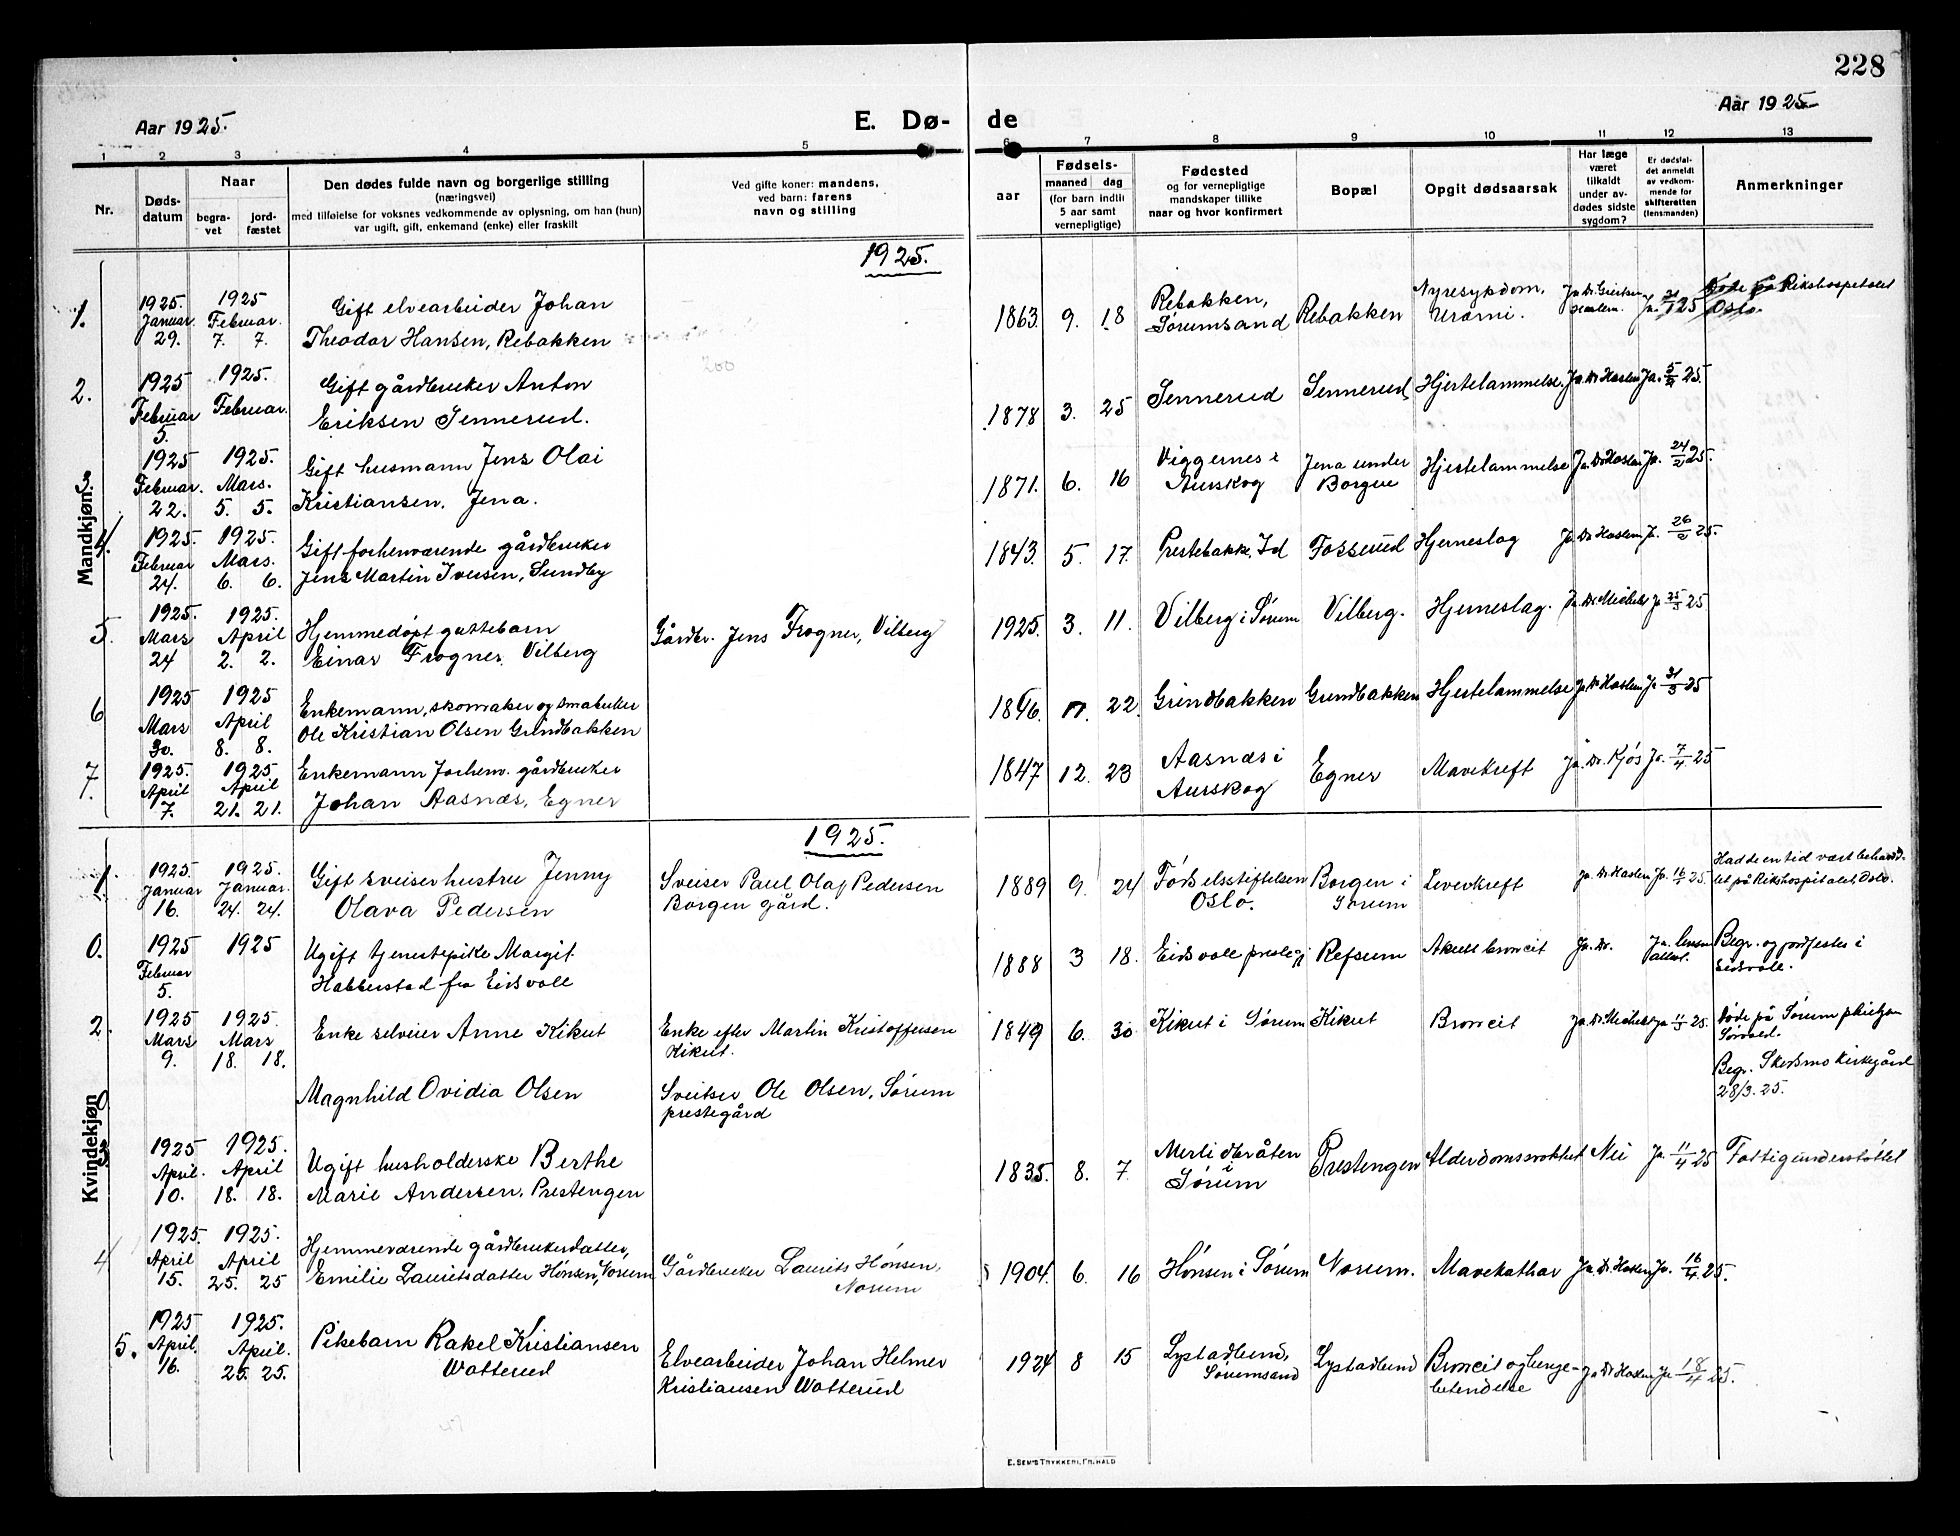 228
Aar 1925.
E. Dø-
de
Aar 1925
1 2 3 4 5 6 7 8 9 10 11 12 13
Nr.
Døds-
datum
Naar
begra-
vet
jord-
fæstet
Den dødes fulde navn og borgerlige stilling
(næringsvei)
med tilføielse for voksnes vedkommende av oplysning, om han (hun)
var ugift, gift, enkemand (enke) eller fraskilt
Ved gifte koner: mandens,
ved barn: farens
navn og stilling
aar
Fødsels-
maaned dag
(for barn indtil
5 aar samt
vernepligtige)
Fødested
og for vernepligtige
mandskaper tillike
naar og hvor konfirmert
Bopæl
Opgit dødsaarsak
Har læge
været
tilkaldt
under av-
dødes sidste
sygdom?
Er dødsfal-
det anmeldt
av vedkom-
mende for
skifteretten
(lensmanden)
Anmerkninger
1925.
Mandkjøn.
1.
1925. Januar 29.
1925 Februar. 7. 7.
Gift elvearbeider Johan
Theodor Hansen, Rebakken
1863. 9. 18
Rebakken,
Sørumsand
Rebakken
Nyresygdom.
Urämi.
Ja. 25
Døde på Rikshospitalet
Oslo.
2.
1925 Februar 5.
1925. Februar.
Gift gårdbruker Anton
Eriksen Sennerud.
1878 3. 25
Sennerud
Sennerud,
Hjertelammelse.
Ja. Dr Haslem
Ja. 5/2 25.
3.
1925 Februar. 22.
1925. Mars. 5. 5.
Gift husmann Jens Olai
Kristiansen. Jena.
1871. 6. 16
Viggernes i
Aurskog
Jena under
Borgen
Hjertelammelse
Ja. Dr Haslem
Ja. 24/2 25.
4.
1925. Februar 24.
1925. Mars. 6. 6.
Gift forhenværende gårdbruker
Jens Martin Iversen, Sundby
1843. 5. 17.
Prestebakke, Id
Fosserud
Hjerneslag
Ja Dr Haslem
J. 26/2 25.
5.
1925. Mars 24
1925. April 2. 2.
Hjemmedøpt guttebarn
Einar Frogner. Vilberg
Gårdbr. Jens Frogner, Vilberg
1925. 3. 11.
Vilberg i Sørum
Vilberg.
Hjerneslag.
Ja 25/3 25
6
1925 Mars 30.
1925 April 8. 8.
Enkemann, skomaker og småbruker
Ole Kristian Olsen Grindbakken
1846. 22.
Grindbakken
Grindbakken
Hjertelammelse
Ja Dr Haslem
Ja 31/3 25
7.
1925. April 7.
1925 April 21. 21.
Enkemann forhem. gårdbruker
Johan Aasnæs, Egner
1847 12. 23
Aasnæs i
Aurskog
Egner
Mavekreft
Ja. Dr. Kjøs
Ja. 7/4 25
1925.
Kvindekjøn
1.
1925. Januar 16.
1925. Januar. 24. 24.
Gift sveiserhustru Jenny
Olava Pedersen
Sveiser Paul Olaf Pedersen
Borgen gård.
1889 9. 24
Fødselsstiftelsen
Oslo.
Borgen i
Sørum
Leverkreft
ja. Dr Haslem
Ja. 16/1 25.
Hadde en tid vært behand-
let på Rikshospitalet, Oslo.
0.
1925 Februar 5.
1925
Ugift tjenestepike Margit
Habberstad fra Eidsvoll
1888 3 18.
Eidsvoll prestegj
Refsum
Akutt broncit
Ja. Dr.
Begr. og jordfestes i
Eidsvoll.
2.
1925 Mars 9.
1925. Mars 18. 18.
Enke selveier Anne Kikut
Enke efter Martin Kristoffersen
Kikut.
1849 6. 30
Kikut i Sørum
Kikut
Broncit
11/3 25.
Døde på Sørum pleiehjem
0
Magnhild Ovidia Olsen
Sveitser Ole Olsen, Sørum
prestegård
Begr. Skedsmo kirkegård
28/3. 25.
3
1925 April. 10.
1925. April 18. 18.
Ugift husholderske Berthe
Marie Andersen, Prestengen
1835. 8. 7.
Merli dbråten
i
Sørum
Prestengen
Alderdomssvakhet
Nei
Ja. 11/4 25
Fattigunderstøttet
4
1925. April 15.
1925. April 25. 25
Hjemmeværende gårdbrukerdatter,
Emilie Lauritsdatter Hønsen, Norum
Gårdbruker Laurits Hønsen,
Norum
1904. 6. 16
Hønsen i Sørum
Norum.
Mavekathar
Ja Dr. Haslem
Ja. 16/4 25.
5.
1925 April. 16.
1925. April. 25. 25.
Pikebarn Rakel Kristiansen
Watterud
Elvearbeider Johan Helmer
Kristiansen Watterud
1924 8 15
Lystadlund,
Sørumsand
Lystadlund
Broncit og lunge-
betendelse
Ja Dr Haslem
Ja 18/4 25.
E. SEM'S TRYKKERI, FR.HALD